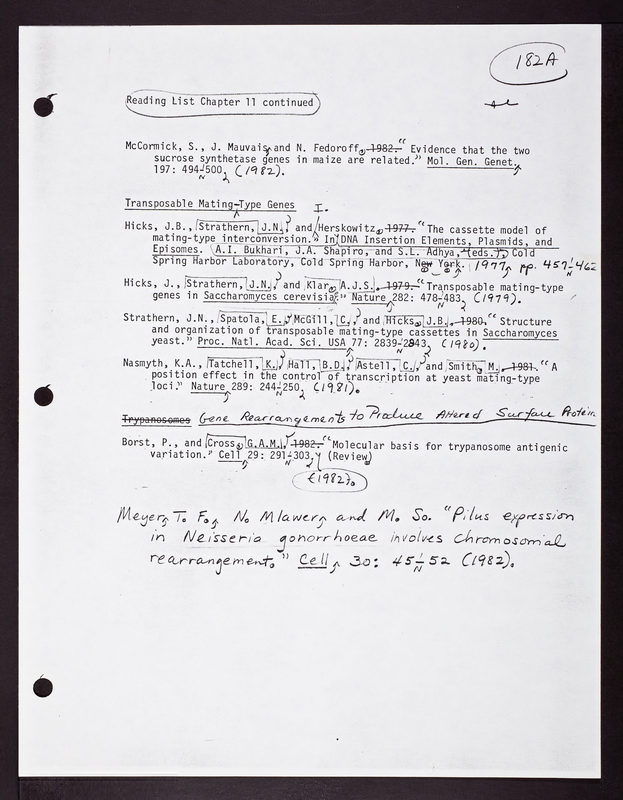 182A
Reading List Chapter 11 continued
McCormick, S., J. Mauvais, and N. Fedoroff, 1982. "Evidence that the two
sucrose synthetase genes in maize are related." Mol. Gen. Genet.,
197: 494-500, (1982).
Transposable Mating-Type Genes I.
Hicks, J.B., Strathern, J.N., and Herskowitz, 1977. "The cassette model of
mating-type interconversion." In DNA Insertion Elements, Plasmids, and
Episomes. A.I. Bukhari, J.A. Shapiro, and S.L. Adhya, (eds.). Cold
Spring Harbor Laboratory, Cold Spring Harbor, New York. 1977, pp. 457-462
Hicks, J., Strathern, J.N., and Klar, A.J.S., 1979. "Transposable mating-type
genes in Saccharomyces cerevisiae." Nature 282: 478-483, (1979).
Strathern, J.N., Spatola, E., McGill, C., and Hicks, J.B., 1980. "Structure
and organization of transposable mating-type cassettes in Saccharomyces
yeast." Proc. Natl. Acad. Sci. USA 77: 2839-2843, (1980).
Nasmyth, K.A., Tatchell, K., Hall, B.D., Astell, C., and Smith, M., 1981. "A
position effect in the control of transcription at yeast mating-type
loci." Nature 289: 244-250, (1981).
Trypanosomes Gene Rearrangements to Produce Altered Surface Protein
Borst, P., and Cross, G.A.M., 1982. "Molecular basis for trypanosome antigenic
variation." Cell 29: 291-303, (Review)
(1982).
Meyer, T. F., N. Mlawer, and M. So. "Pilus expression
in Neisseria gonorrhoeae involves chromosomal
rearrangement." Cell, 30: 45-52 (1982).